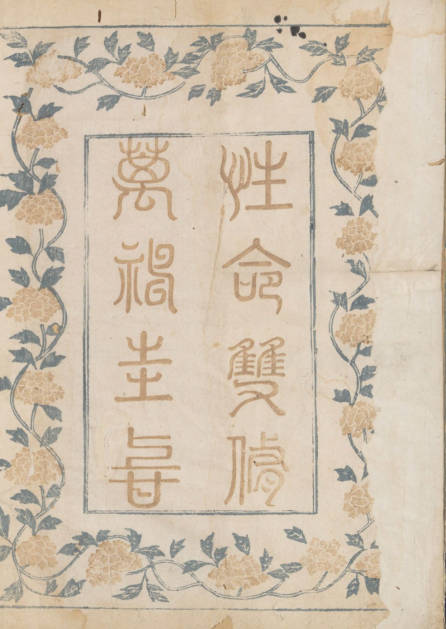 性命雙修
萬神圭旨